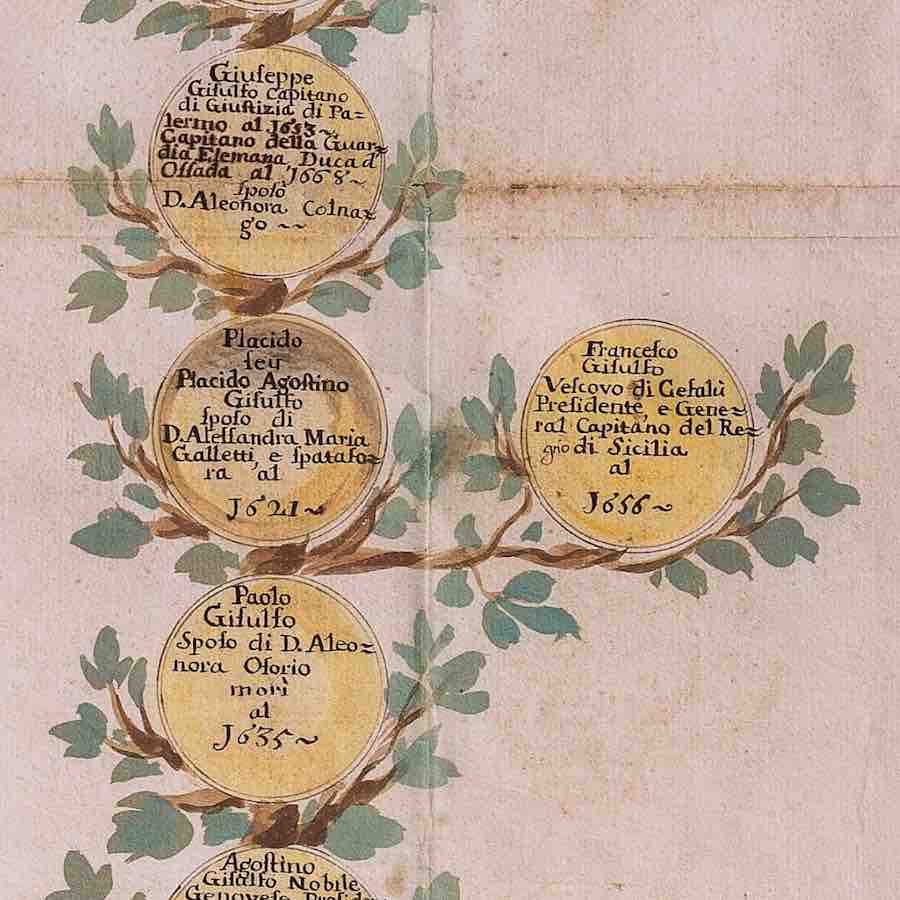 Giuſeppe
Giſulfo Capitano
di Giuſtizia di Pa=
lermo al 1653~
Capitano della Guar=
dia Elemana, Duca d'
Oſſada al 1668~
ſpoſò
D. Aleonora Colna=
go ~~
Placido
ſeu
Placido Agoſtino
Giſulfo
ſpoſo di
D. Aleſſandra Maria
Galletti, e ſpatafo=
ra al
1621~
Franceſco
Giſulfo
Veſcovo di Cefalù
Preſidente, e Gene=
ral Capitano del Re=
gno di Sicilia
al
1656~
Paolo
Giſulfo
Spoſo di D. Aleo=
nora Oſorio
morì
al
1635~
Agoſtino
Giſulfo Nobile
Genoveſe